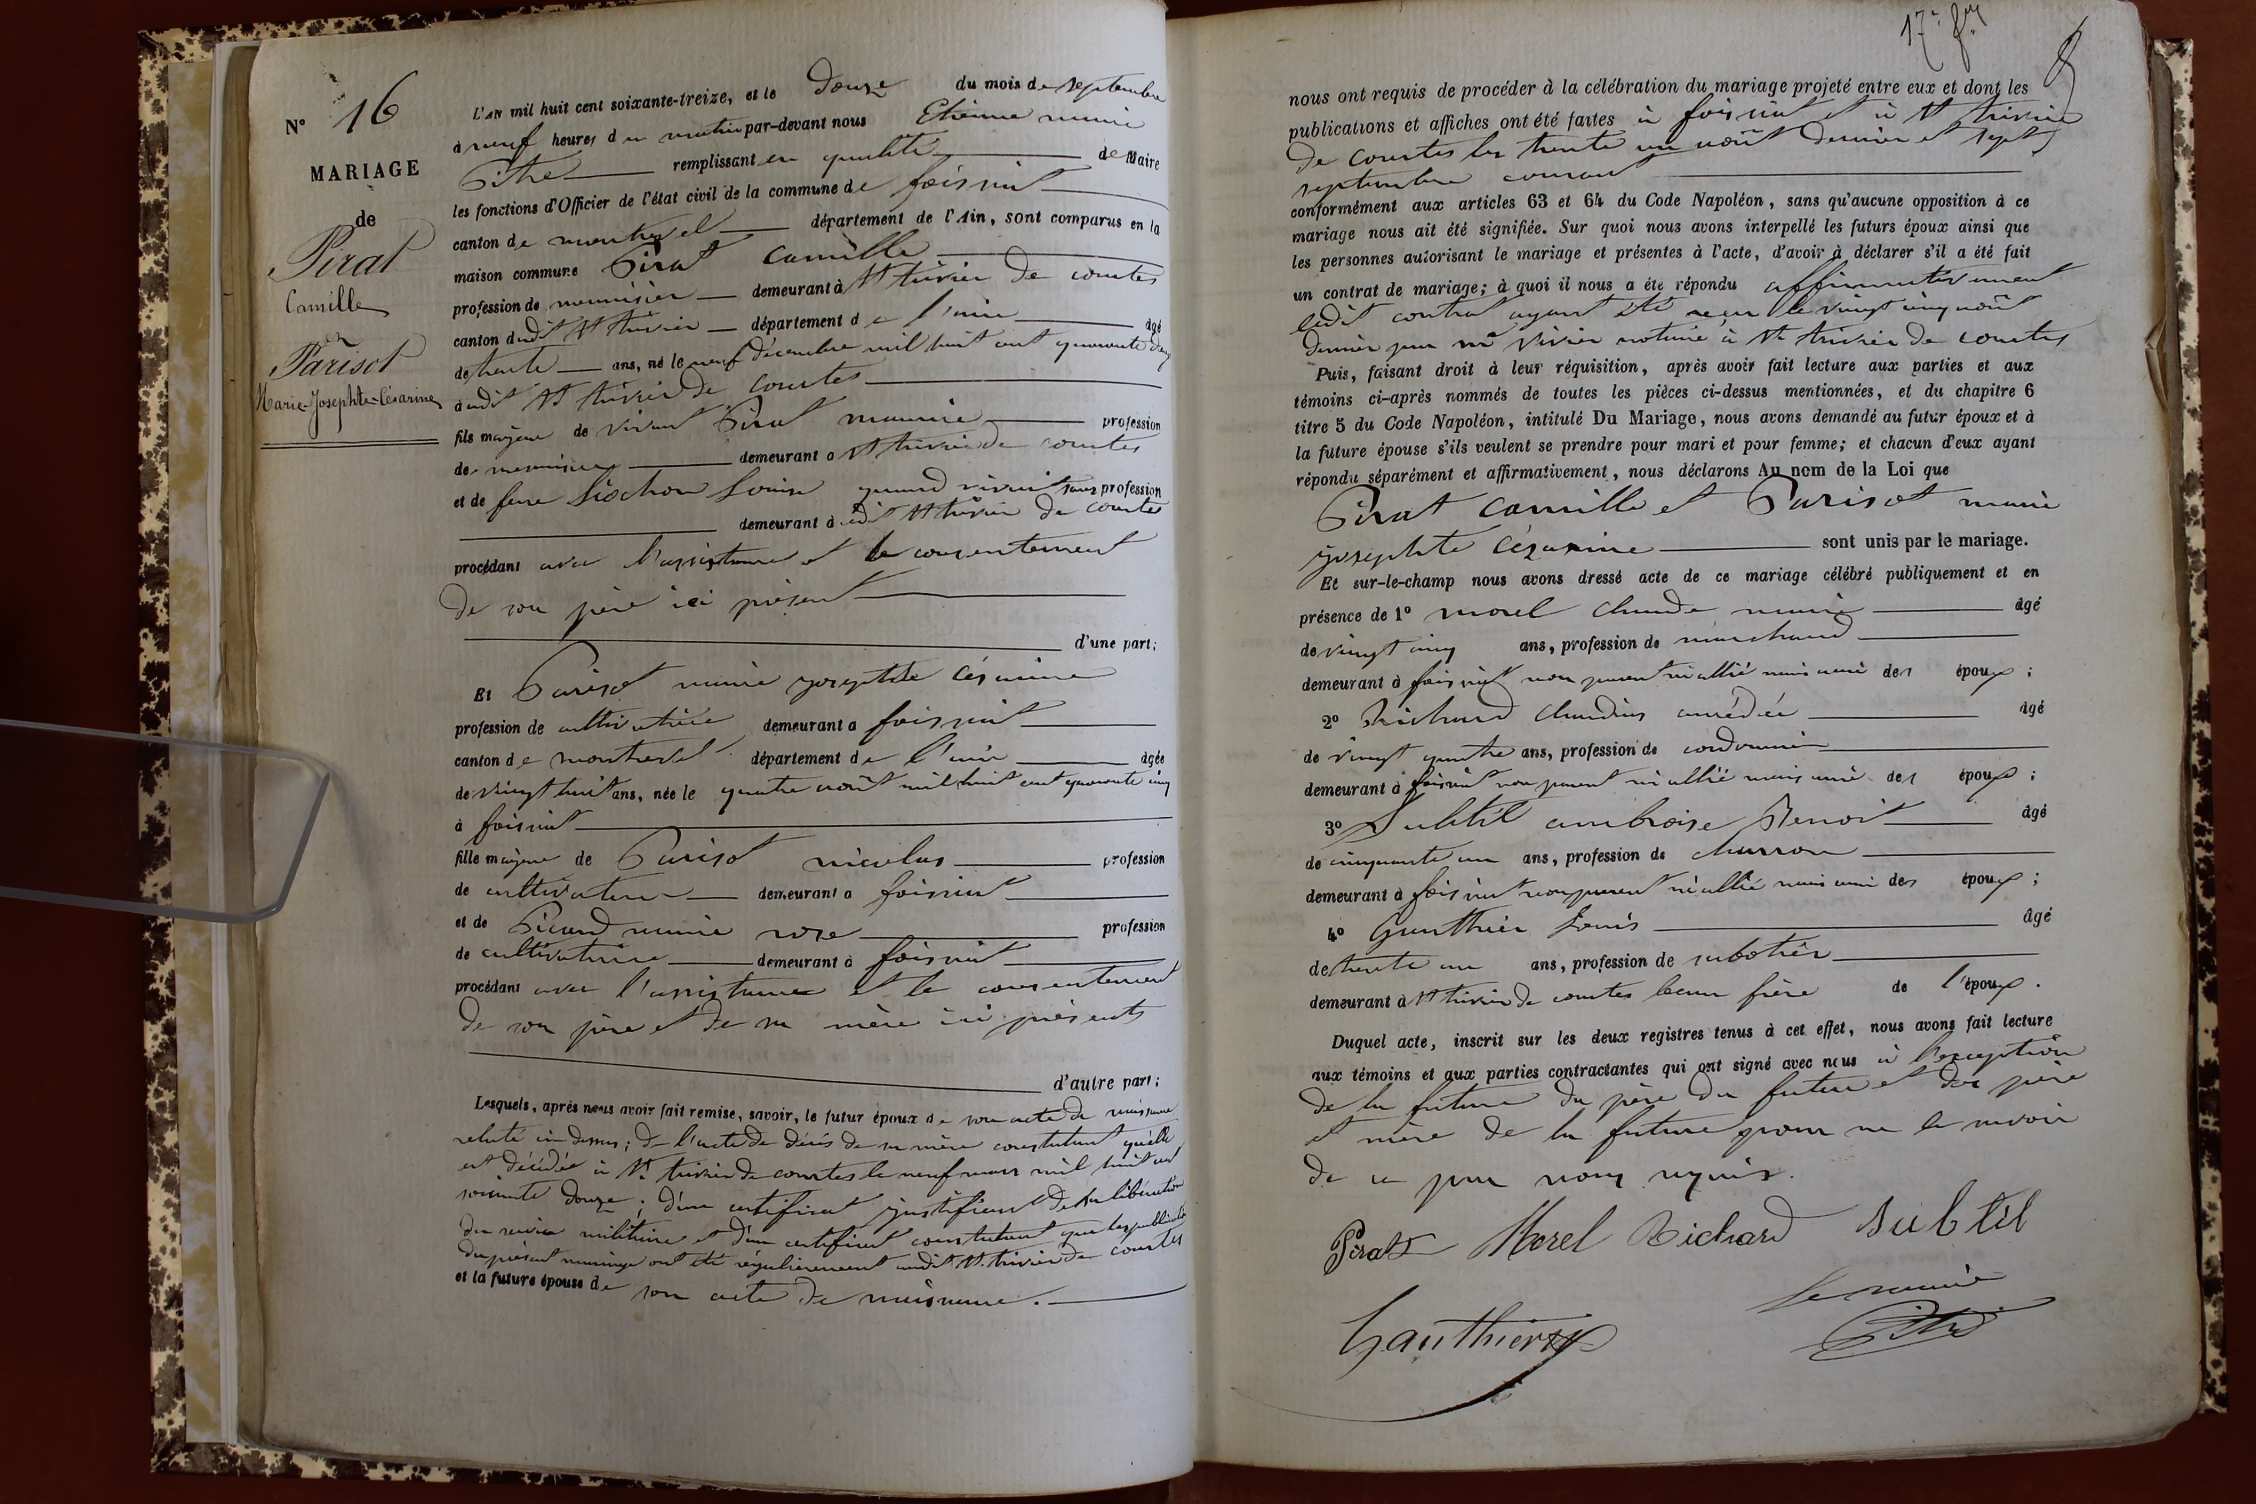 N° 16
MARIAGE
de
Pirat
Camille
et
Parisot
Marie-Josephte-Césarine
L'an mil huit cent soixante-treize, et le douze du mois de septembre
à neuf heures du matin par-devant nous Etienne marie
Pithé remplissant en qualité de Maire
les fonctions d'Officier de l'état civil de la commune de foissiat
canton de montrevel département de l'Ain, sont comparus en la
maison commune Pirat Camille
profession de menuisier demeurant à St trivier de courtes
canton dudit St trivier département de l'ain âgé
de trente ans, né le neuf décembre mil huit cent quarante deux
audit St trivier de courtes
fils majeur de vivant Pirat maurice profession
de menuisier demeurant à St trivier de courtes
et de feue Siochon Louise quand vivait sans profession
demeurant à udit St trivier de courtes
procédant avec l'assistance et le consentement
de son père ici présent
d'une part;
Et Parisot marie josephte césarine
profession de cultivatrice demeurant à foissiat
canton de montrevel département de l'ain âgée
de vingt huit ans, née le quatre août mil huit cent quarante cinq
à foissiat
fille majeure de Parisot nicolas profession
de cultivateur demeurant à foissiat
et de Picard marie rose profession
de cultivatrice demeurant à foissiat
procédant avec l'assistance et le consentement
de son père et de sa mère ici présents
d'autre part;
Lesquels, après nous avoir fait remise, savoir, le futur époux de son acte de naissance
relaté ci-dessus; de l'acte de décès de sa mère constatant qu'elle
est décédée à St trivier de courtes le neuf mars mil huit cent
soixante douze; d'un certificat justifiant de sa libération
du service militaire et d'un certificat constatant que les publications
du présent mariage ont été régulièrement audit St trivier de courtes
et la future épouse de son acte de naissance.
17e fet
8
nous ont requis de procéder à la célébration du mariage projeté entre eux et dont les
publications et affiches ont été faites à foissiat et à St trivier
de courtes les trente un août dernier et sept
septembre courant
conformément aux articles 63 et 64 du Code Napoléon, sans qu'aucune opposition à ce
mariage nous ait été signifiée. Sur quoi nous avons interpellé les futurs époux ainsi que
les personnes autorisant le mariage et présentes à l'acte, d'avoir à déclarer s'il a été fait
un contrat de mariage; à quoi il nous a été répondu affirmativement
ledit contrat ayant été reçu le vingt cinq août
dernier par me Vivier notaire à St trivier de courtes
Puis, faisant droit à leur réquisition, après avoir fait lecture aux parties et aux
témoins ci-après nommés de toutes les pièces ci-dessus mentionnées, et du chapitre 6
titre 5 du Code Napoléon, intitulé Du Mariage, nous avons demandé au futur époux et à
la future épouse s'ils veulent se prendre pour mari et pour femme; et chacun d'eux ayant
répondu séparément et affirmativement, nous déclarons Au nom de la Loi que
Pirat Camille et Parisot marie
josephte cézarine sont unis par le mariage.
Et sur-le-champ nous avons dressé acte de ce mariage célébré publiquement et en
présence de 1° morel claude marie âgé
de vingt cinq ans, profession de marchand
demeurant à foissiat non parent ni allié mais ami des époux;
2° Richard claudius amédée âgé
de vingt quatre ans, profession de cordonnier
demeurant à foissiat non parent ni allié mais ami des époux;
3° Subtil ambroise Benoit âgé
de cinquante un ans, profession de charron
demeurant à foissiat non parent ni allié mais ami des époux;
4° Gauthier Louis âgé
de trente un ans, profession de sabotier
demeurant à St trivier de courtes beau frère de l'époux.
Duquel acte, inscrit sur les deux registres tenus à cet effet, nous avons fait lecture
aux témoins et aux parties contractantes qui ont signé avec nous à l'exception
de la future du père du futur et des père
et mère de la future pour ne le savoir
de ce par nous requis.
Pirat Morel Richard Subtil
Le maire
Gauthier Pithé